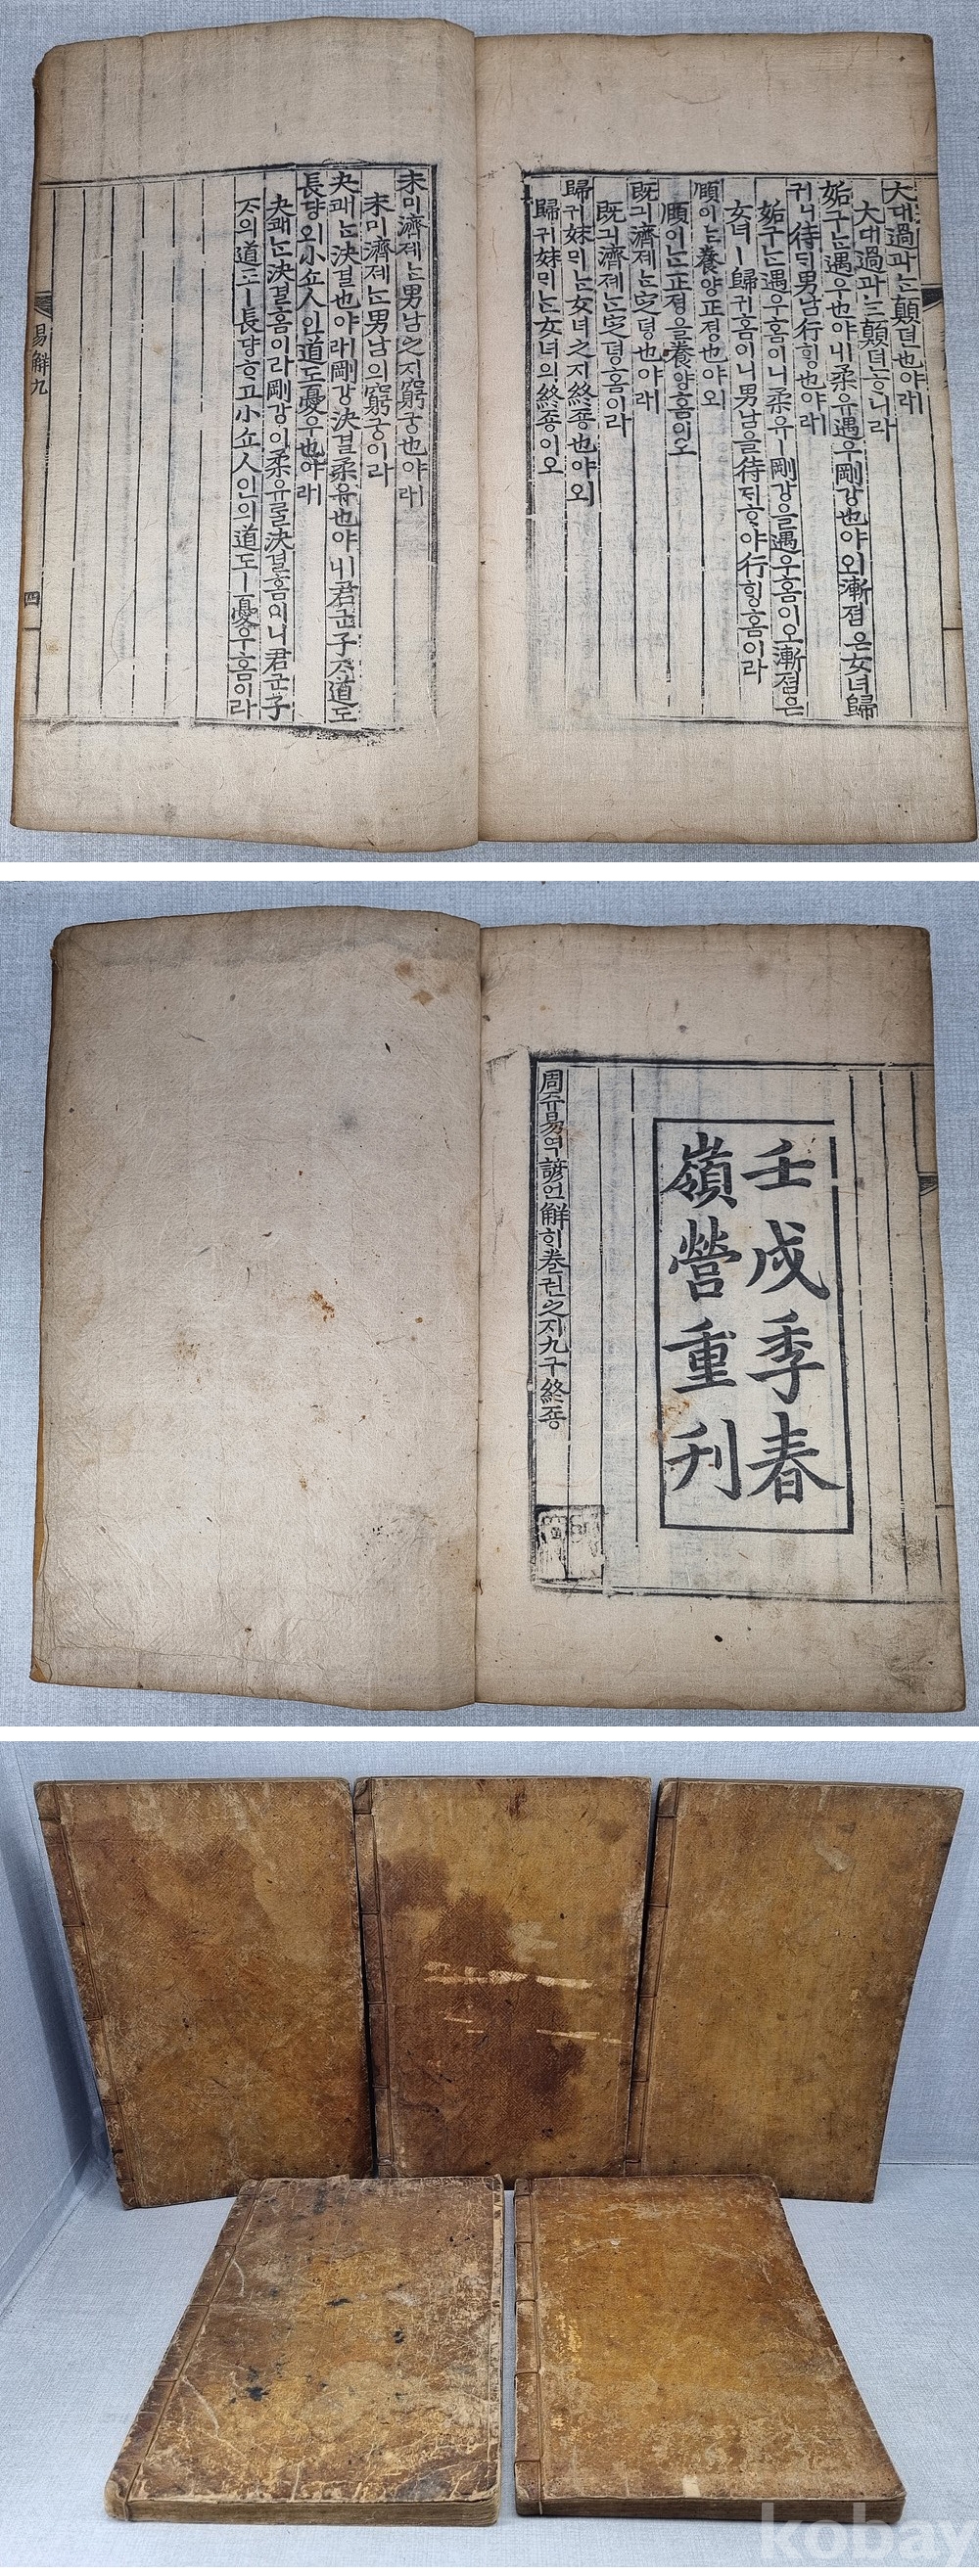 大대過과는顚뎐也야ㅣ라
大대過과는顚뎐ᄒᆞ니라
姤구는遇우也야ㅣ니柔유遇우剛강也야ㅣ오漸졈은女녀歸
귀니待ᄃᆡ男남行ᄒᆡᆼ也야ㅣ라
姤구는遇우홈이니柔유ㅣ剛강을遇우홈이오漸졈은
女녀ㅣ歸귀홈이니男남을待ᄃᆡᄒᆞ야行ᄒᆡᆼ홈이라
頤이는養양正졍也야ㅣ오
頤이는正졍을養양홈이오
既긔濟졔는定뎡也야ㅣ라
既긔濟졔는定뎡홈이라
歸귀妹ᄆᆡ는女녀之지終죵也야ㅣ오
歸귀妹ᄆᆡ는女녀의終죵이오
未미濟졔는男남之지窮궁也야ㅣ라
未미濟졔는男남의窮궁이라
夬쾌는決결也야ㅣ라剛강決결柔유也야ㅣ니君군子ᄌᆞ道도
長댱ㅣ오小쇼人인道도憂우也야ㅣ라
夬쾌는決결홈이라剛강이柔유를決결홈이니君군子
ᄌᆞ의道도ㅣ長댱ᄒᆞ고小쇼人인의道도ㅣ憂우홈이라
易解九
四
壬戌季春
嶺營重刊
周쥬易역諺언解ᄒᆡ卷권之지九구終죵
kobay